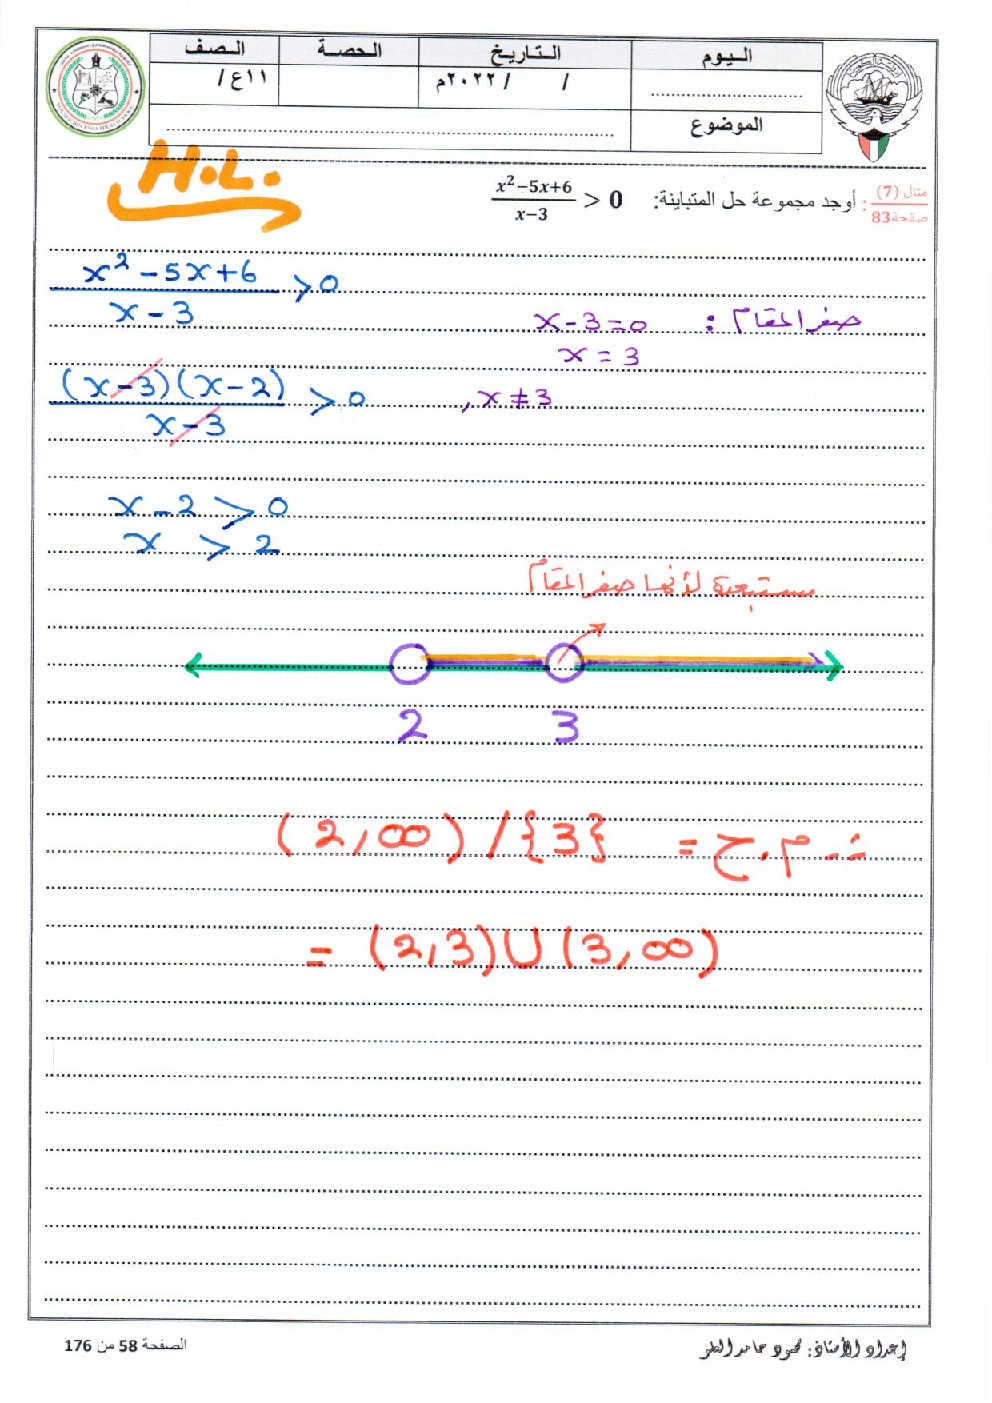 اليوم التاريخ الحصة الصف
.............. / / ٢٠٢٢م ١١ع /
الموضوع ..............
H.L.
مثال (7) صفحة83 : أوجد مجموعة حل المتباينة: (x²−5x+6)/(x−3) > 0
(x² - 5x + 6)/(x - 3) > 0
صفر المقام : x - 3 = 0
x = 3
((x - 3)(x - 2))/(x - 3) > 0 , x ≠ 3
x - 2 > 0
x > 2
مستبعدة لأنها صفر المقام
2 3
∴ م.ح = (2,∞) / {3}
= (2,3) ∪ (3,∞)
إعداد الأستاذ: محمود حامد
الصفحة 58 من 176